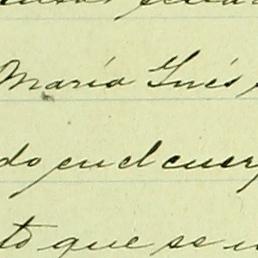 María Inés
do en el cuerp
to que se